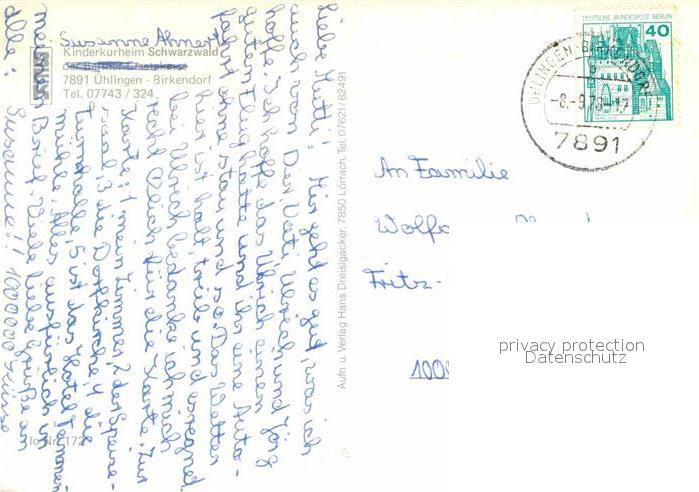 Susanne Ahnert
Kinderkurheim Schwarzwald
der Barmer Ersatzkasse
7891 Ühlingen - Birkendorf
Tel. 07743 / 324
Liebe Mutti! Mir geht es gut, was ich
auch von Dir, Vati, Ulrich und Jörg
hoffe. Ich hoffe das Ulrich einen
guten Flug hatte und ihr eine Auto-
fahrt ohne Stau und so. Das Wetter
hier ist kalt, trüb und es regnet
bei Ulrich bedanke ich mich
recht lich für die Karte. Zur
Karte: 1 mein Zimmer, 2 der Speise-
saal, 3 die Dorfkirche, 4 die
Turnhalle, 5 ist das Hotel Tannen-
mühle. Alles ausführlich in
meinem Brief. Viele liebe Grüße an
alle: Susanne!! 1000000 Küsse
Aufn. u. Verlag Hans Dreisigacker, 7850 Lörrach, Tel. 07621/82491
DEUTSCHE BUNDESPOST BERLIN
40
ÜHLINGEN-BIRKENDORF
7891
An Familie
Fritz-
privacy protection
Datenschutz